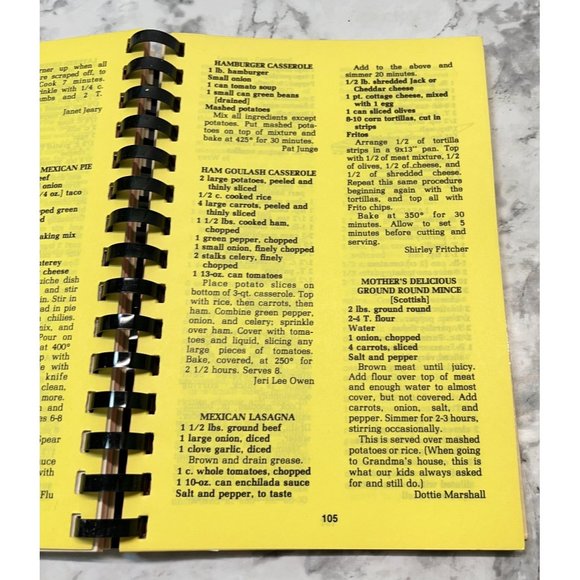 orner up when all
re scraped off, to
Cook 7 minutes.
inkle with 1/4 c.
mbs and 2 T.
Janet Jeary
MEXICAN PIE
beef
onion
/4 oz.] taco
pped green
d
aking mix
nterey
cheese
niche dish
and stir
n. Stir in
ad in pie
n chilies.
mix, and
Pour on
at 400°
p with
with
knife
clean.
more.
and
es 6-8
Spear
uce
with
Flu
HAMBURGER CASSEROLE
1 lb. hamburger
Small onion
1 can tomato soup
1 small can green beans
[drained]
Mashed potatoes
Mix all ingredients except
potatoes. Put mashed pota-
toes on top of mixture and
bake at 425° for 30 minutes.
Pat Junge
HAM GOULASH CASSEROLE
2 large potatoes, peeled and
thinly sliced
1/2 c. cooked rice
4 large carrots, peeled and
thinly sliced
1 1/2 lbs. cooked ham,
chopped
1 green pepper, chopped
1 small onion, finely chopped
2 stalks celery, finely
chopped
1 13-oz. can tomatoes
Place potato slices on
bottom of 3-qt. casserole. Top
with rice, then carrots, then
ham. Combine green pepper,
onion, and celery; sprinkle
over ham. Cover with toma-
toes and liquid, slicing any
large pieces of tomatoes.
Bake, covered, at 250° for
2 1/2 hours. Serves 8.
Jeri Lee Owen
MEXICAN LASAGNA
1 1/2 lbs. ground beef
1 large onion, diced
1 clove garlic, diced
Brown and drain grease.
1 c. whole tomatoes, chopped
1 10-oz. can enchilada sauce
Salt and pepper, to taste
Add to the above and
simmer 20 minutes.
1/2 lb. shredded Jack or
Cheddar cheese
1 pt. cottage cheese, mixed
with 1 egg
1 can sliced olives
8-10 corn tortillas, cut in
strips
Fritos
Arrange 1/2 of tortilla
strips in a 9x13" pan. Top
with 1/2 of meat mixture, 1/2
of olives, 1/2 of cheese, and
1/2 of shredded cheese.
Repeat this same procedure
beginning again with the
tortillas, and top all with
Frito chips.
Bake at 350° for 30
minutes. Allow to set 5
minutes before cutting and
serving.
Shirley Fritcher
MOTHER'S DELICIOUS
GROUND ROUND MINCE
[Scottish]
2 lbs. ground round
2-4 T. flour
Water
1 onion, chopped
4 carrots, sliced
Salt and pepper
Brown meat until juicy.
Add flour over top of meat
and enough water to almost
cover, but not covered. Add
carrots, onion, salt, and
pepper. Simmer for 2-3 hours,
stirring occasionally.
This is served over mashed
potatoes or rice. (When going
to Grandma's house, this is
what our kids always asked
for and still do.)
Dottie Marshall
105